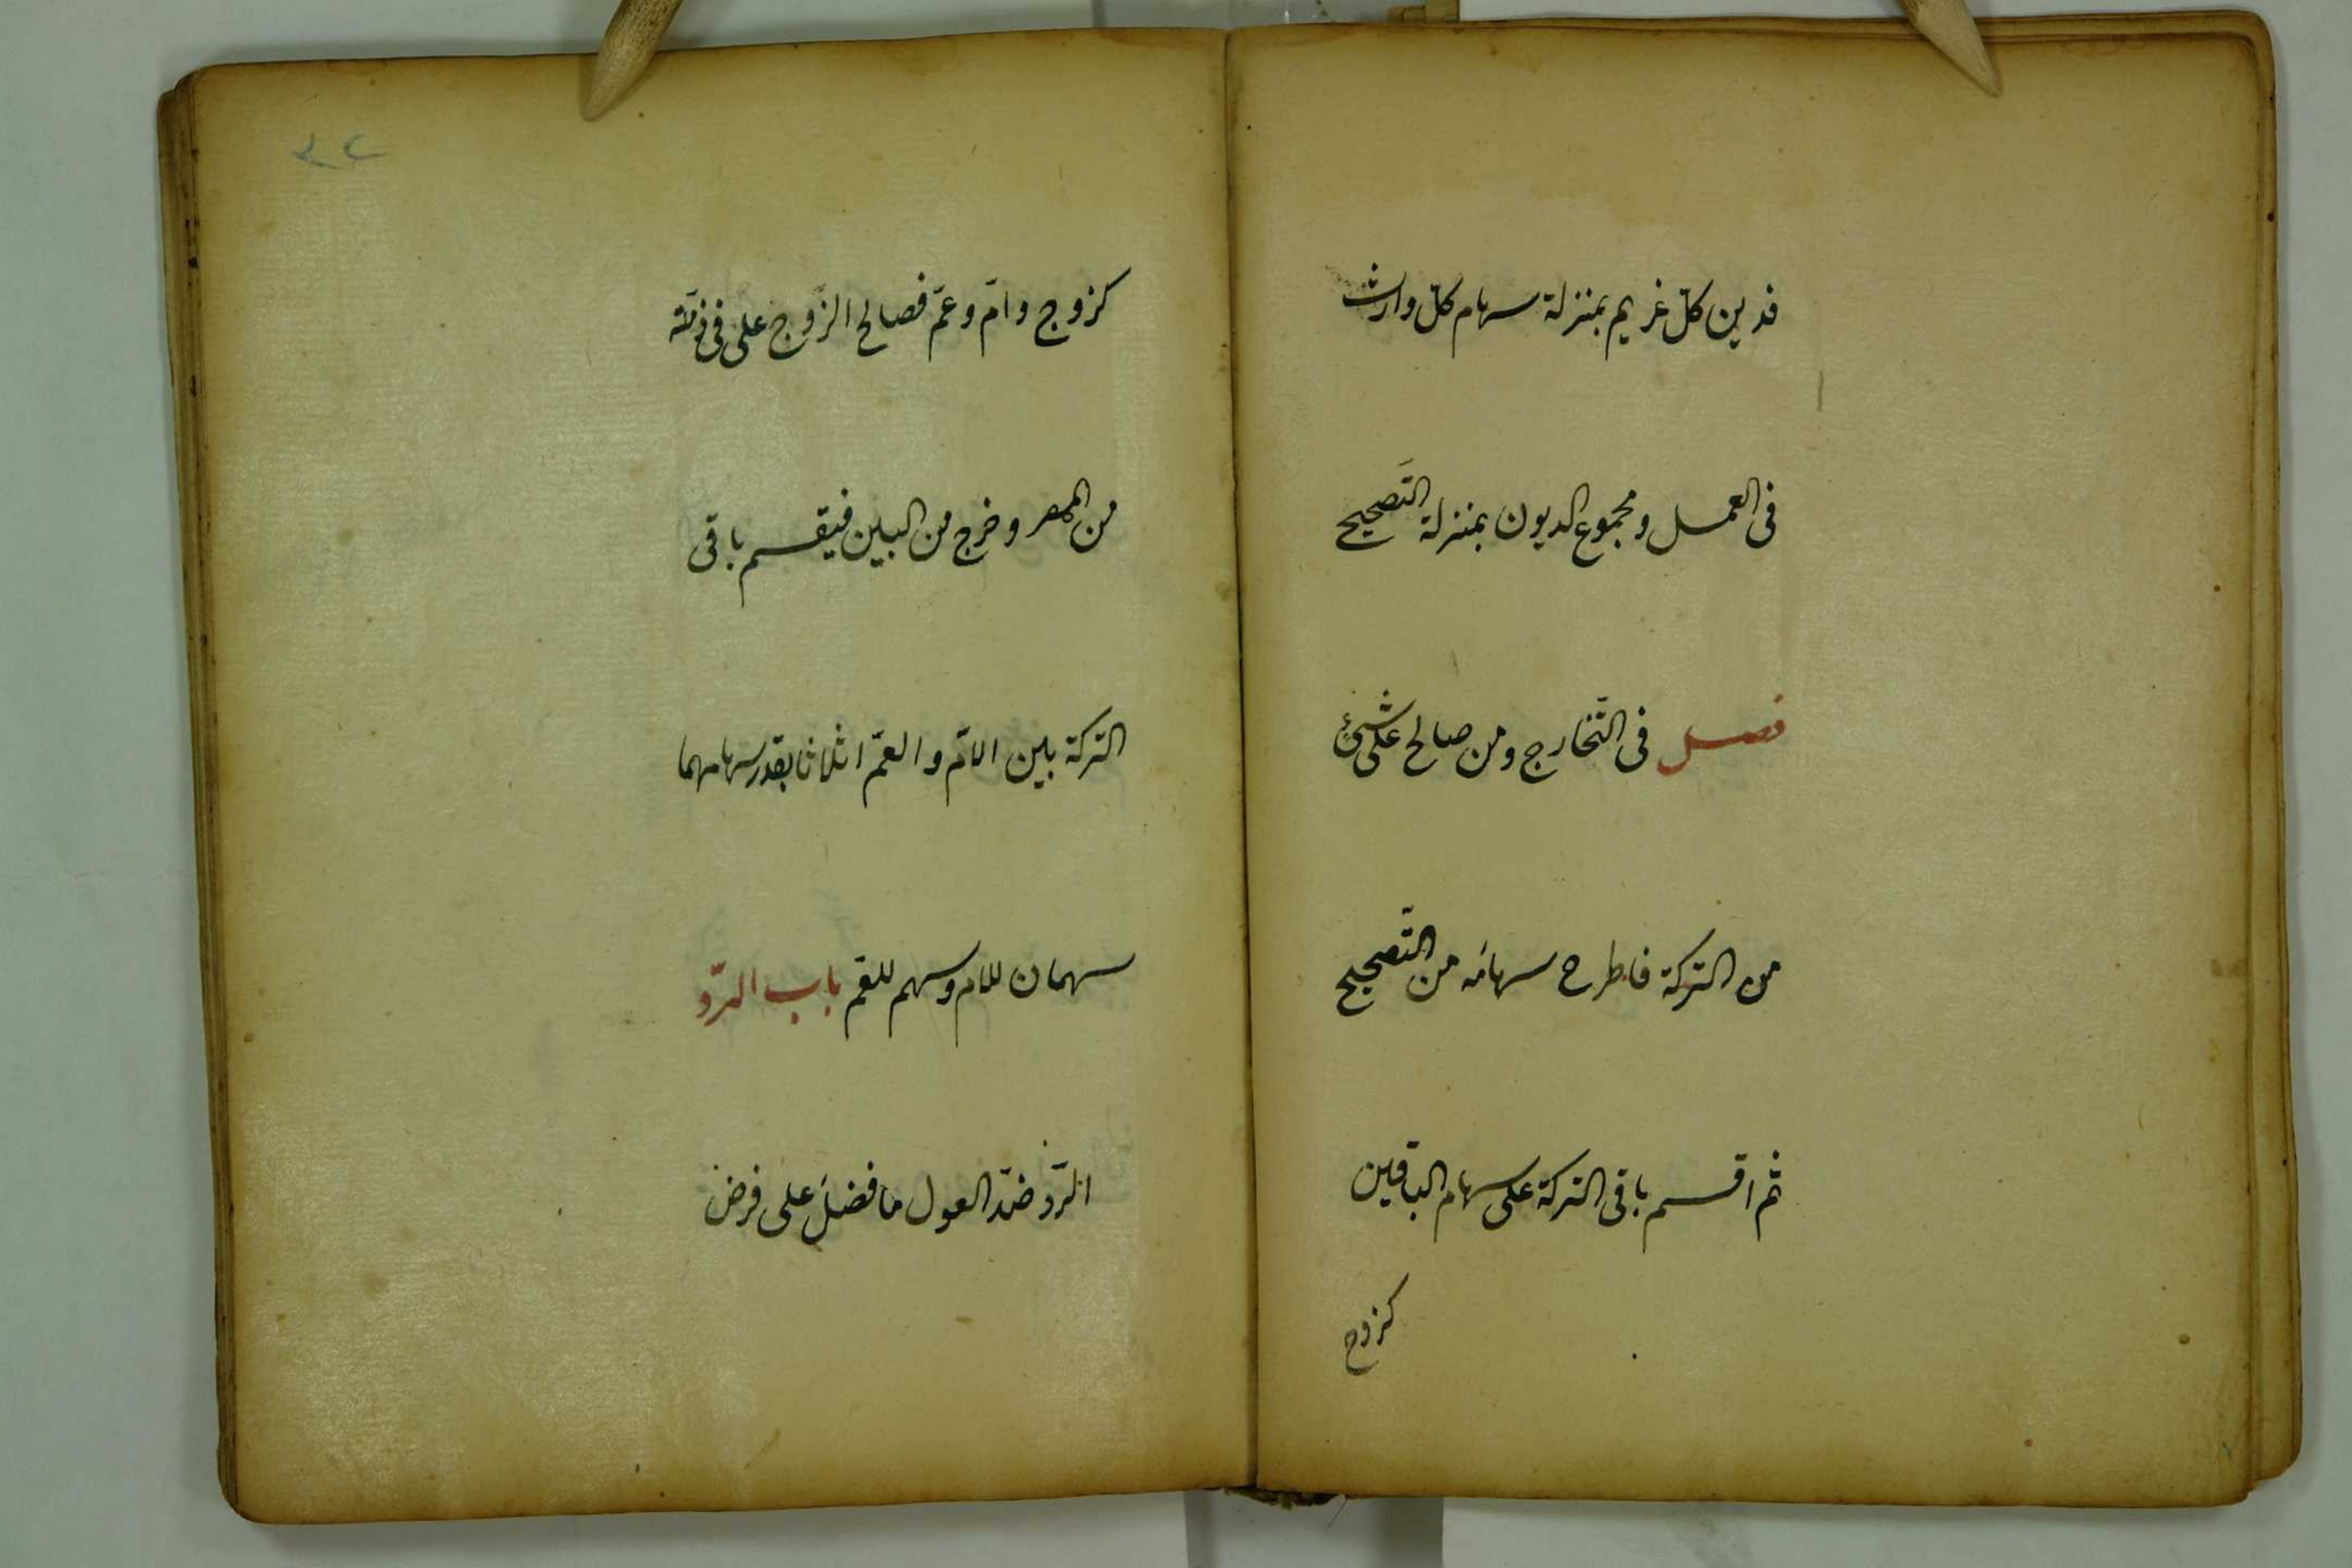 فدين كلّ غريم بمنزلة سهام كلّ وارث
فى العمل ومجموع الديون بمنزلة التَصحيح
فصل فى التّخارج ومن صالح على شئ
من التركة فاطرح سهامَه من التّصحيح
ثم اقسم باقى التركة على سهام الباقين
كزوج
٣٢
كزوج وامّ وعمّ فصالح الزّوج على فى ذمّته
من المهر وخرج من البين فيقسم باقى
التركة بين الامّ والعمّ اثلاثا بقدر سهامهما
سهمان للام وسهم للعم باب الردّ
الردّ ضدّ العول ما فضلَ على فرض